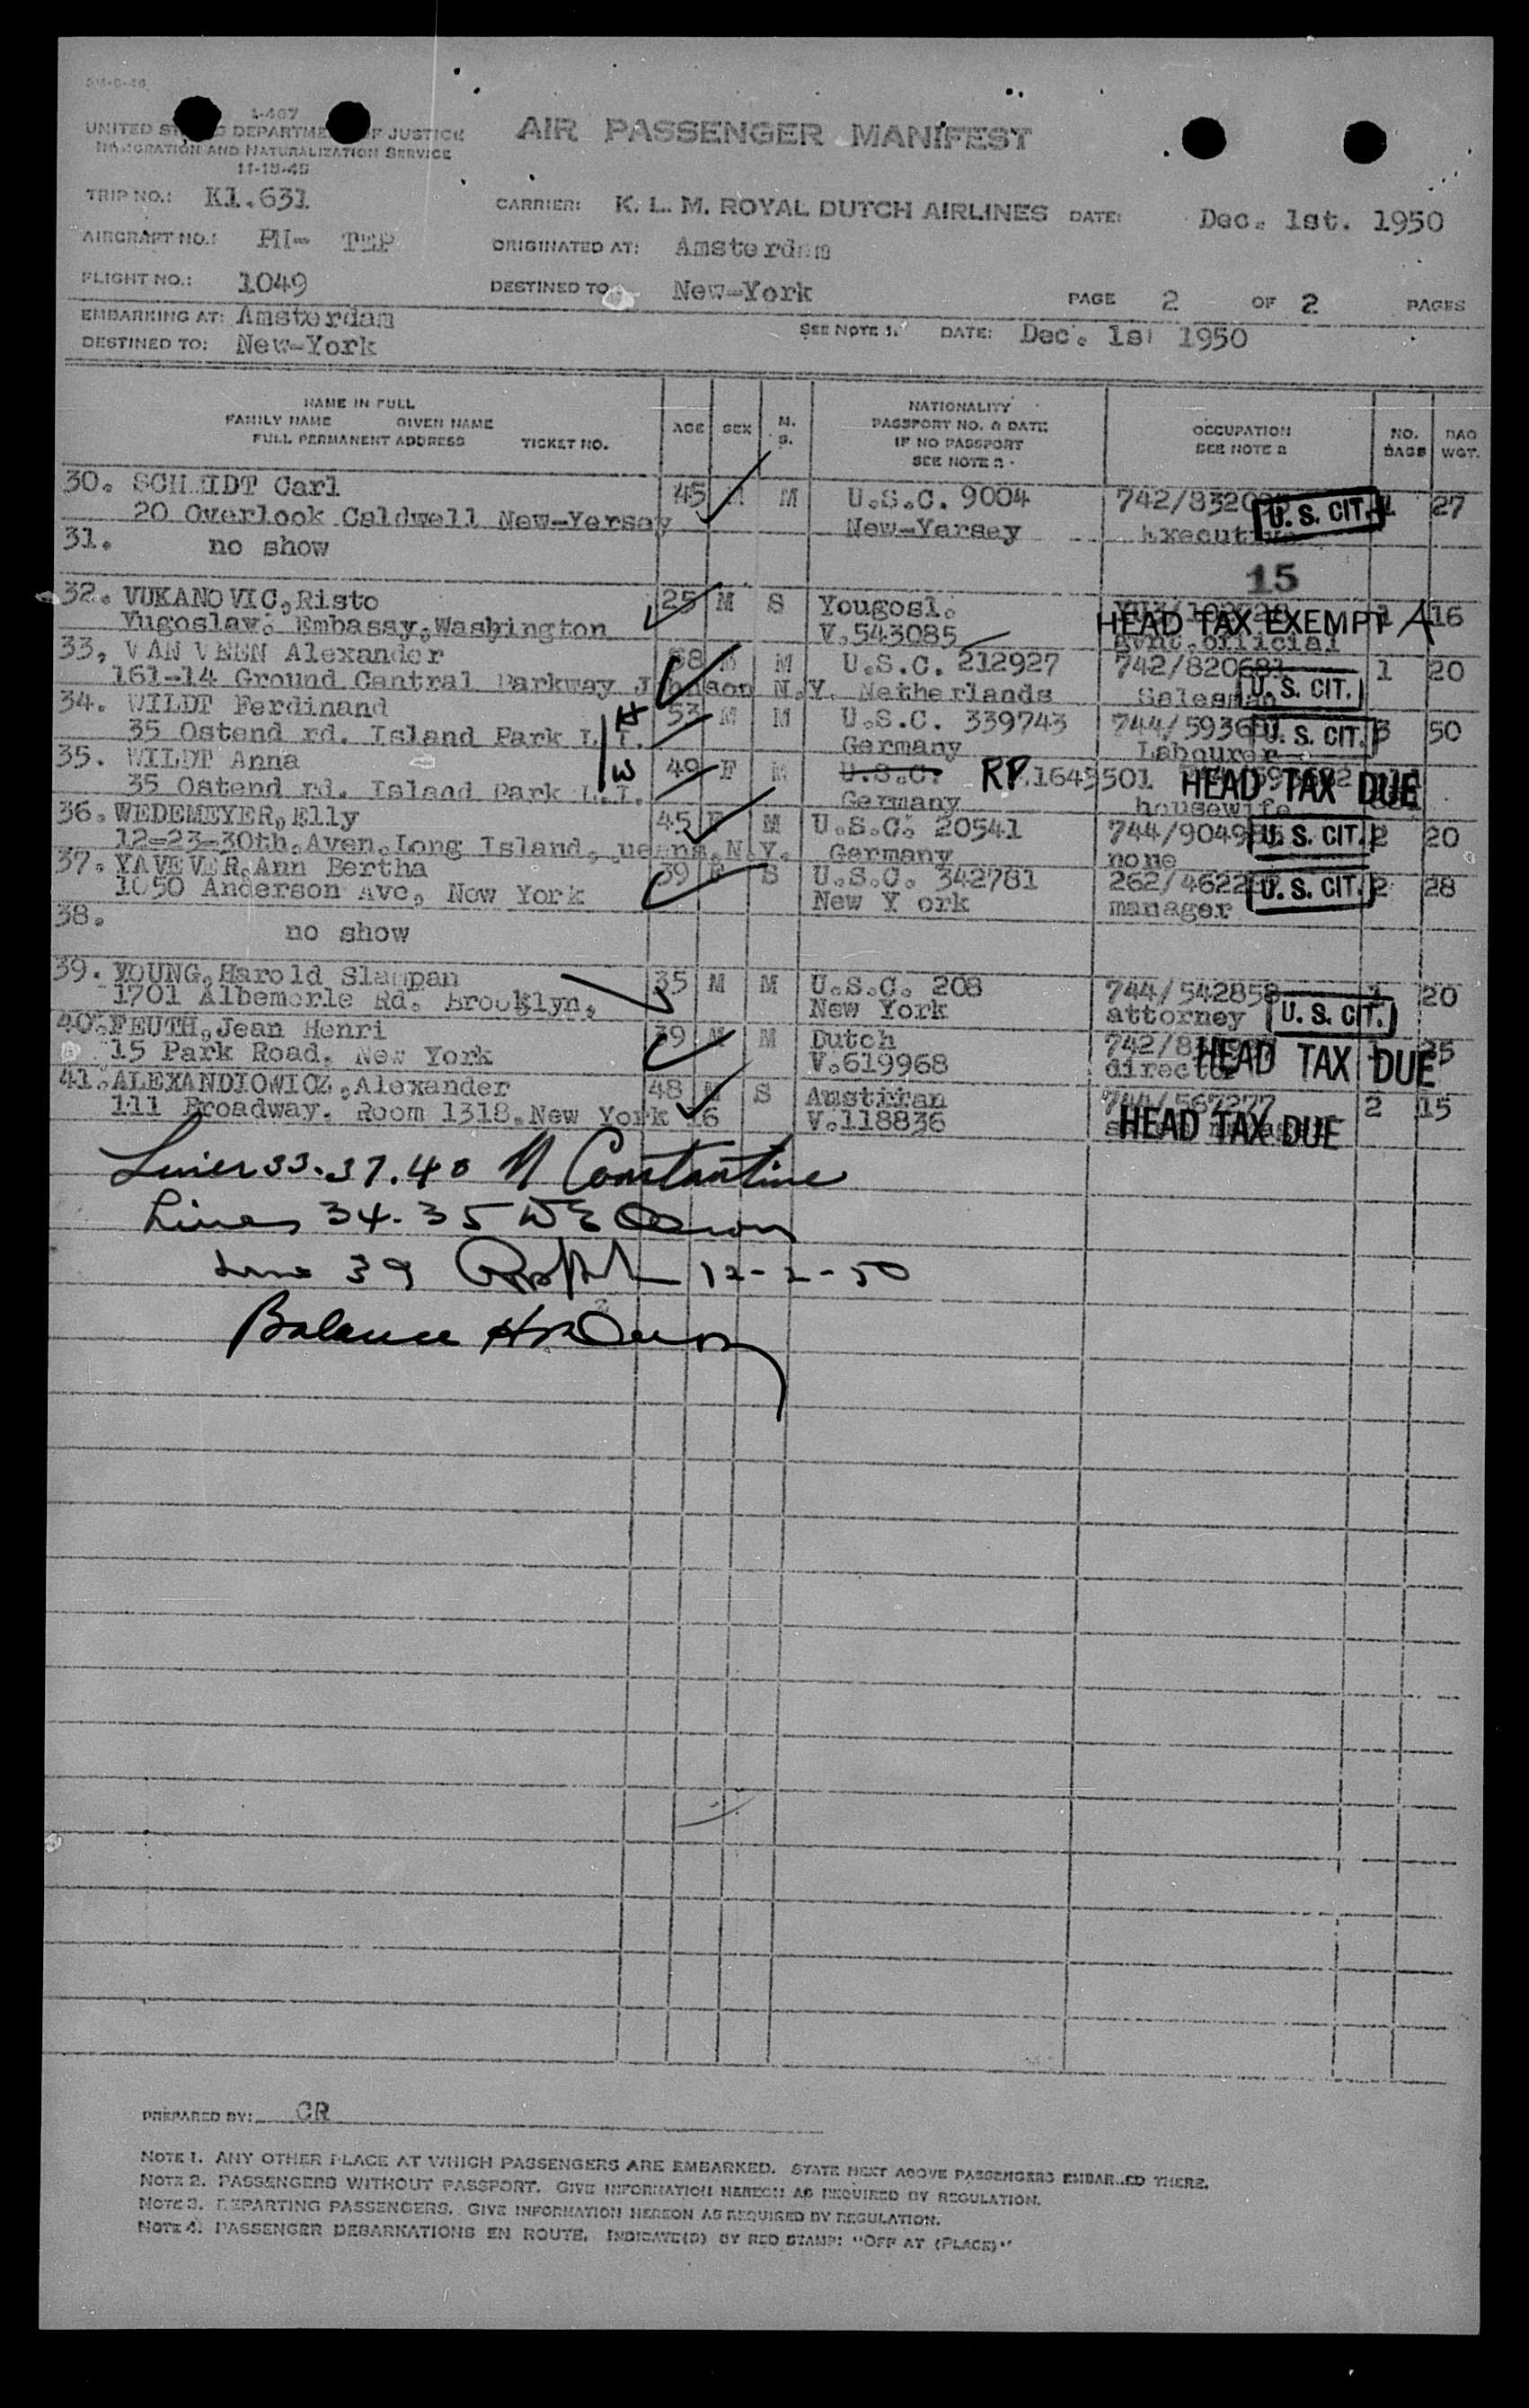 I-407
UNITED STATES DEPARTMENT OF JUSTICE
IMMIGRATION AND NATURALIZATION SERVICE
11-15-45
AIR PASSENGER MANIFEST
TRIP NO.: Kl.631
CARRIER: K. L. M. ROYAL DUTCH AIRLINES DATE: Dec. 1st. 1950
AIRCRAFT NO.: PH- TEP
ORIGINATED AT: Amsterdam
FLIGHT NO.: 1049
DESTINED TO New-York
PAGE 2 OF 2 PAGES
EMBARKING AT: Amsterdam
SEE NOTE 1. DATE: Dec. 1st 1950
DESTINED TO: New-York
NAME IN FULL
FAMILY NAME GIVEN NAME
FULL PERMANENT ADDRESS TICKET NO.
AGE SEX M. S.
NATIONALITY
PASSPORT NO. & DATE
IF NO PASSPORT
SEE NOTE 2
OCCUPATION
SEE NOTE 2
NO. BAGS
BAG WGT.
30. SCHMIDT Carl 45 M M U.S.C. 9004 U. S. CIT. 1 27
20 Overlook Caldwell New-Yersey New-Yersey Executive
31. no show
15
32. VUKANOVIC,Risto 25 M S Yougosl. 1 16
Yugoslaw. Embassy,Washington V.543085 HEAD TAX EXEMPT A
Gvnt.official
33, VAN VEEN Alexander M M U.S.C. 212927 742/820681 1 20
161-14 Ground Cantral Parkway N.Y. Netherlands Salesman U. S. CIT.
34. WILDT Ferdinand H 53 M M U.S.C. 339743 U. S. CIT. 3 50
35 Ostend rd. Island Park L.I. Germany Labourer
35. WILDT Anna W 49 F M U.S.C. RP.1645501 HEAD TAX DUE
35 Ostend rd. Island Park L.I. Germany housewife
36. WEDEMEYER,Elly 45 F M U.S.C. 20541 U. S. CIT. 2 20
12-23-30th.Aven.Long Island, N.Y. Germany none
37. YAVEVER,Ann Bertha 39 F S U.S.C. 342781 U. S. CIT. 2 28
1050 Anderson Ave, New York New Y ork manager
38. no show
39. YOUNG,Harold 35 M M U.S.C. 208 744/542858 1 20
1701 Albemarle Rd. Brooklyn, New York attorney U. S. CIT.
40. FEUTH,Jean Henri 39 M M Dutch 25
15 Park Road, New York V.619968 director HEAD TAX DUE
41. ALEXANDIOWICZ,Alexander 48 M S Austrian 744/567277 2 15
111 Broadway. Room 1318.New York 16 V.118836 HEAD TAX DUE
Lines 33.37.40 N Constantine
Lines 34-35
Line 39 12-2-50
Balance
PREPARED BY: CR
NOTE 1. ANY OTHER PLACE AT WHICH PASSENGERS ARE EMBARKED. STATE NEXT ABOVE PASSENGERS EMBARKED THERE.
NOTE 2. PASSENGERS WITHOUT PASSPORT. GIVE INFORMATION HEREON AS REQUIRED BY REGULATION.
NOTE 3. DEPARTING PASSENGERS. GIVE INFORMATION HEREON AS REQUIRED BY REGULATION.
NOTE 4. PASSENGER DEBARKATIONS EN ROUTE. INDICATE(D) BY RED STAMP: "OFF AT (PLACE)"